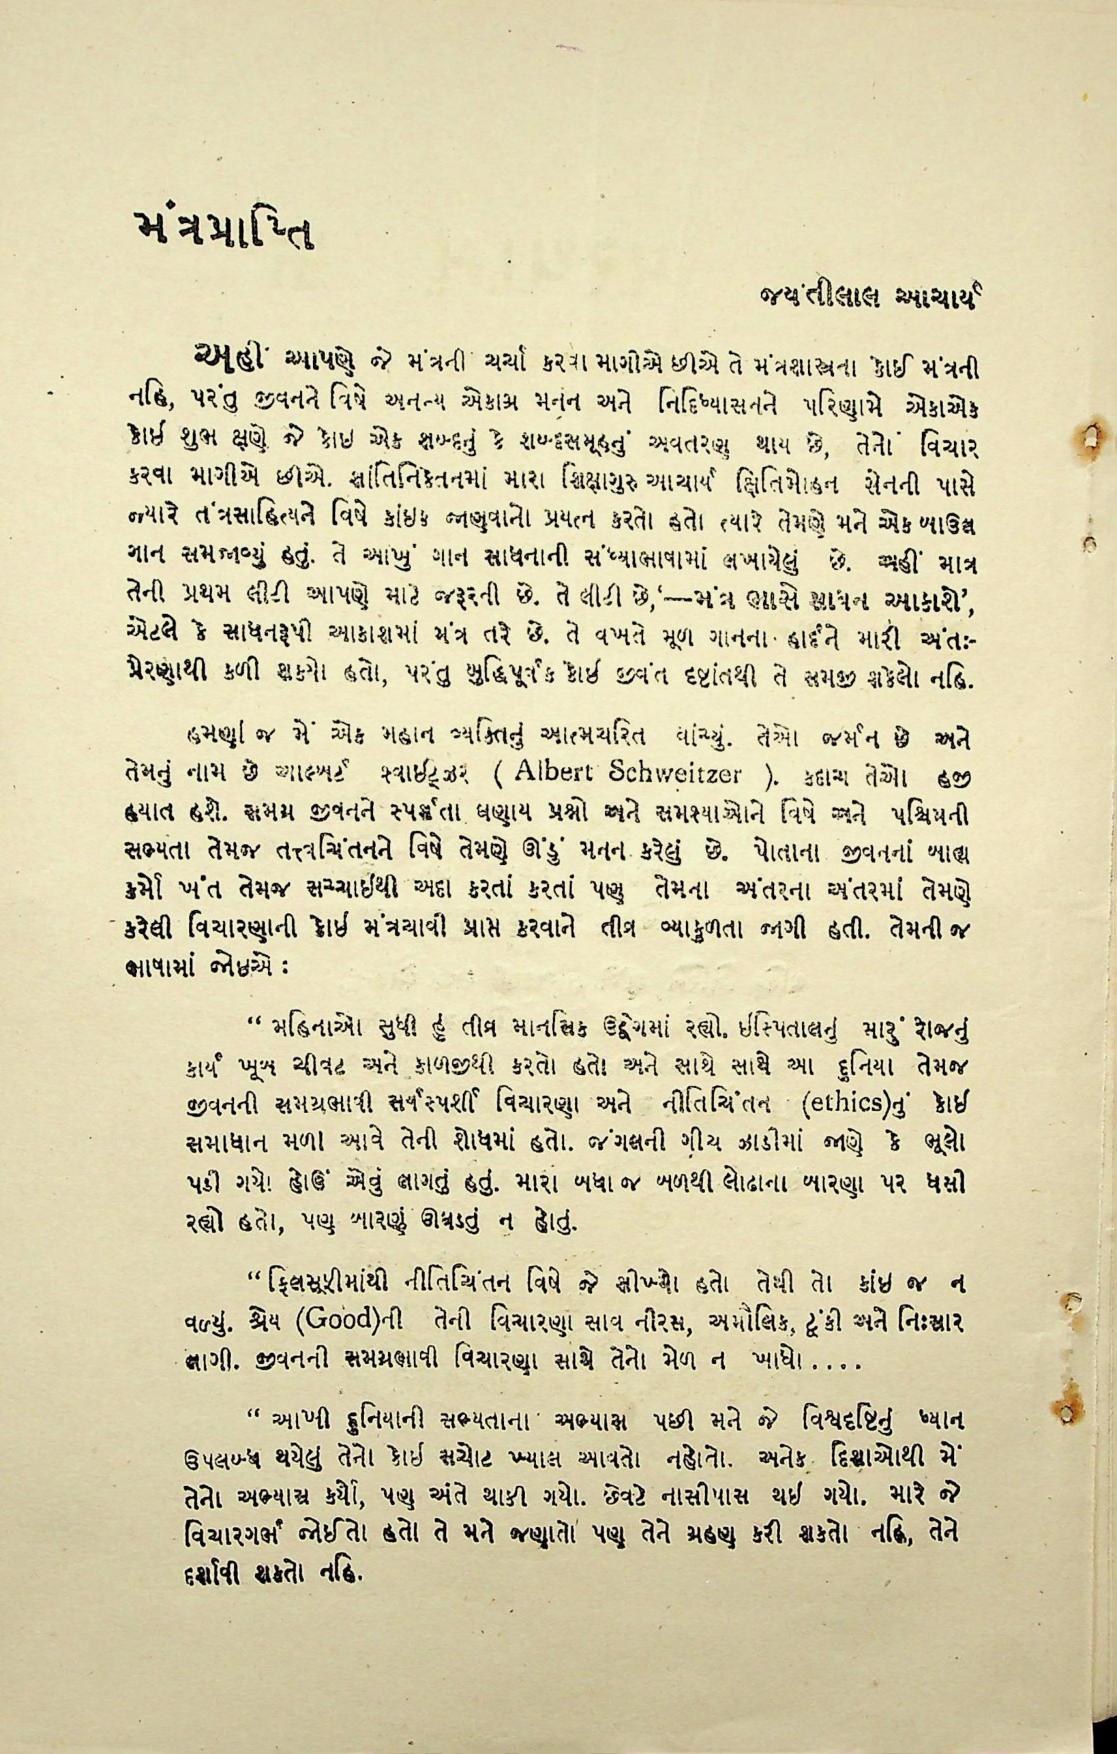 મંત્રપ્રાપ્તિ
જયંતીલાલ આચાર્ય
અહીં આપણે જે મંત્રની ચર્ચા કરવા માગીએ છીએ તે મંત્રશાસ્ત્રના કોઈ મંત્રની
નહિ, પરંતુ જીવનને વિષે અનન્ય એકાગ્ર મનન અને નિદિધ્યાસનને પરિણામે એકાએક
કોઇ શુભ ક્ષણે જે કોઇ એક શબ્દનું કે શબ્દસમૂહનું અવતરણ થાય છે, તેનો વિચાર
કરવા માગીએ છીએ. શાંતિનિકેતનમાં મારા શિક્ષાગુરુ આચાર્ય ક્ષિતિમોહન સેનની પાસે
જ્યારે તંત્રસાહિત્યને વિષે કાંઇક જાણવાનો પ્રયત્ન કરતો હતો ત્યારે તેમણે મને એક બાઉલ
ગાન સમજાવ્યું હતું. તે આખું ગાન સાધનાની સંધ્યાભાષામાં લખાયેલું છે. અહીં માત્ર
તેની પ્રથમ લીટી આપણે માટે જરૂરની છે. તે લીટી છે,‘—મંત્ર ભાસે સાધન આકાશે’,
એટલે કે સાધનરૂપી આકાશમાં મંત્ર તરે છે. તે વખતે મૂળ ગાનના હાર્દને મારી અંતઃ-
પ્રેરણાથી કળી શક્યો હતો, પરંતુ બુદ્ધિપૂર્વક કોઈ જીવંત દૃષ્ટાંતથી તે સમજી શકેલો નહિ.
હમણાં જ મેં એક મહાન વ્યક્તિનું આત્મચરિત વાંચ્યું. તેઓ જર્મન છે અને
તેમનું નામ છે આલ્બર્ટ સ્વાઈટ્ઝર ( Albert Schweitzer ). કદાચ તેઓ હજી
હયાત હશે. સમગ્ર જીવનને સ્પર્શતા ઘણાય પ્રશ્નો અને સમસ્યાઓને વિષે અને પશ્ચિમની
સભ્યતા તેમજ તત્ત્વચિંતનને વિષે તેમણે ઊંડું મનન કરેલું છે. પોતાના જીવનનાં બાહ્ય
કર્મો ખંત તેમજ સચ્ચાઇથી અદા કરતાં કરતાં પણ તેમના અંતરના અંતરમાં તેમણે
કરેલી વિચારણાની કોઇ મંત્રચાવી પ્રાપ્ત કરવાને તીવ્ર વ્યાકુળતા જાગી હતી. તેમની જ
ભાષામાં જોઇએ :
“ મહિનાઓ સુધી હું તીવ્ર માનસિક ઉદ્વેગમાં રહ્યો. ઇસ્પિતાલનું મારું રોજનું
કાર્ય ખૂબ ચીવટ અને કાળજીથી કરતો હતો અને સાથે સાથે આ દુનિયા તેમજ
જીવનની સમગ્રભાવી સર્વસ્પર્શી વિચારણા અને નીતિચિંતન (ethics)નું કોઇ
સમાધાન મળી આવે તેની શોધમાં હતો. જંગલની ગીચ ઝાડીમાં જાણે કે ભૂલો
પડી ગયો હોઉં એવું લાગતું હતું. મારા બધા જ બળથી લોઢાના બારણા પર ધસી
રહ્યો હતો, પણ બારણું ઊઘડતું ન હોતું.
“ ફિલસૂફીમાંથી નીતિચિંતન વિષે જે શીખ્યો હતો તેથી તો કાંઇ જ ન
વળ્યું. શ્રેય (Good)ની તેની વિચારણા સાવ નીરસ, અમૌલિક, ટૂંકી અને નિઃસાર
લાગી. જીવનની સમગ્રભાવી વિચારણા સાથે તેનો મેળ ન ખાધો....
“ આખી દુનિયાની સભ્યતાના અભ્યાસ પછી મને જે વિશ્વદૃષ્ટિનું ધ્યાન
ઉપલબ્ધ થયેલું તેનો કોઇ સચોટ ખ્યાલ આવતો નહોતો. અનેક દિશાઓથી મેં
તેનો અભ્યાસ કર્યો, પણ અંતે થાકી ગયો. છેવટે નાસીપાસ થઇ ગયો. મારે જે
વિચારગર્ભ જોઈતો હતો તે મને જણાતો પણ તેને ગ્રહણ કરી શકતો નહિ, તેને
દર્શાવી શકતો નહિ.